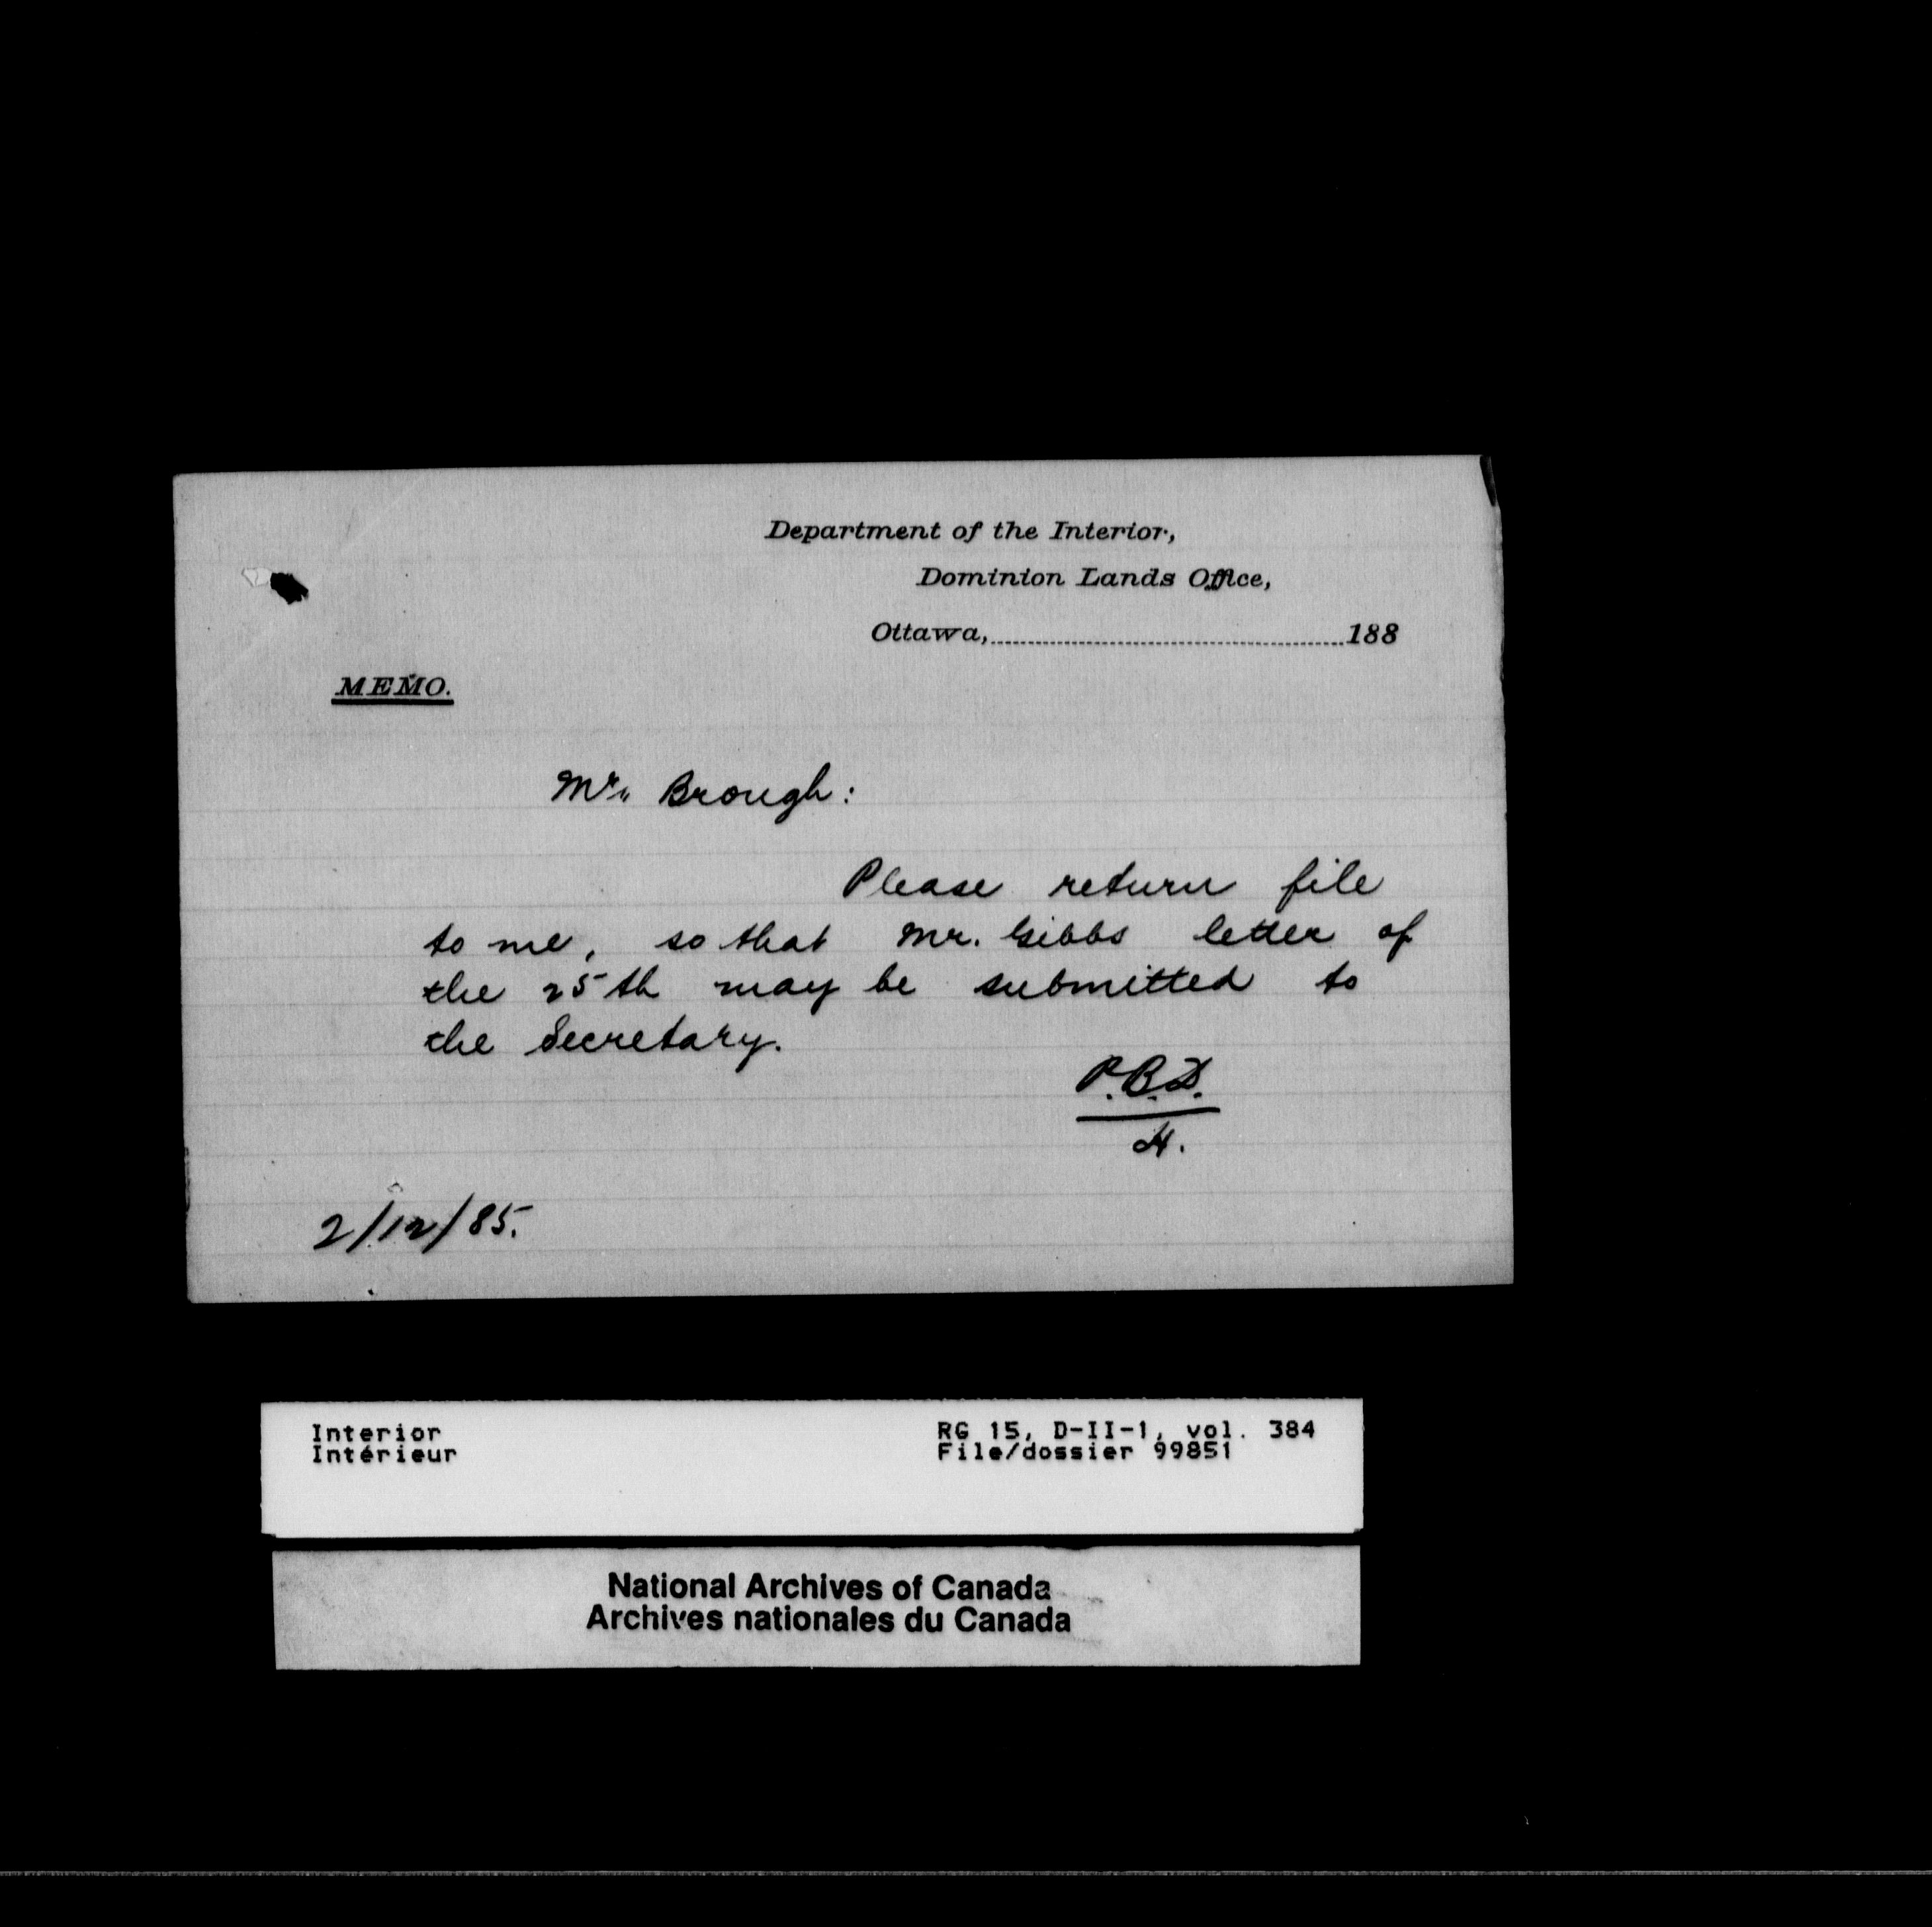 Department of the Interior,
Dominion Lands Office,
Ottawa,..............................188
MEMO.
Mr. Brough:
Please return file
to me, so that Mr. Gibbs letter of
the 25th may be submitted to
the Secretary.
P.B.D.
H.
2/12/85.
Interior
Intérieur
RG 15, D-II-1, vol. 384
File/dossier 99851
National Archives of Canada
Archives nationales du Canada